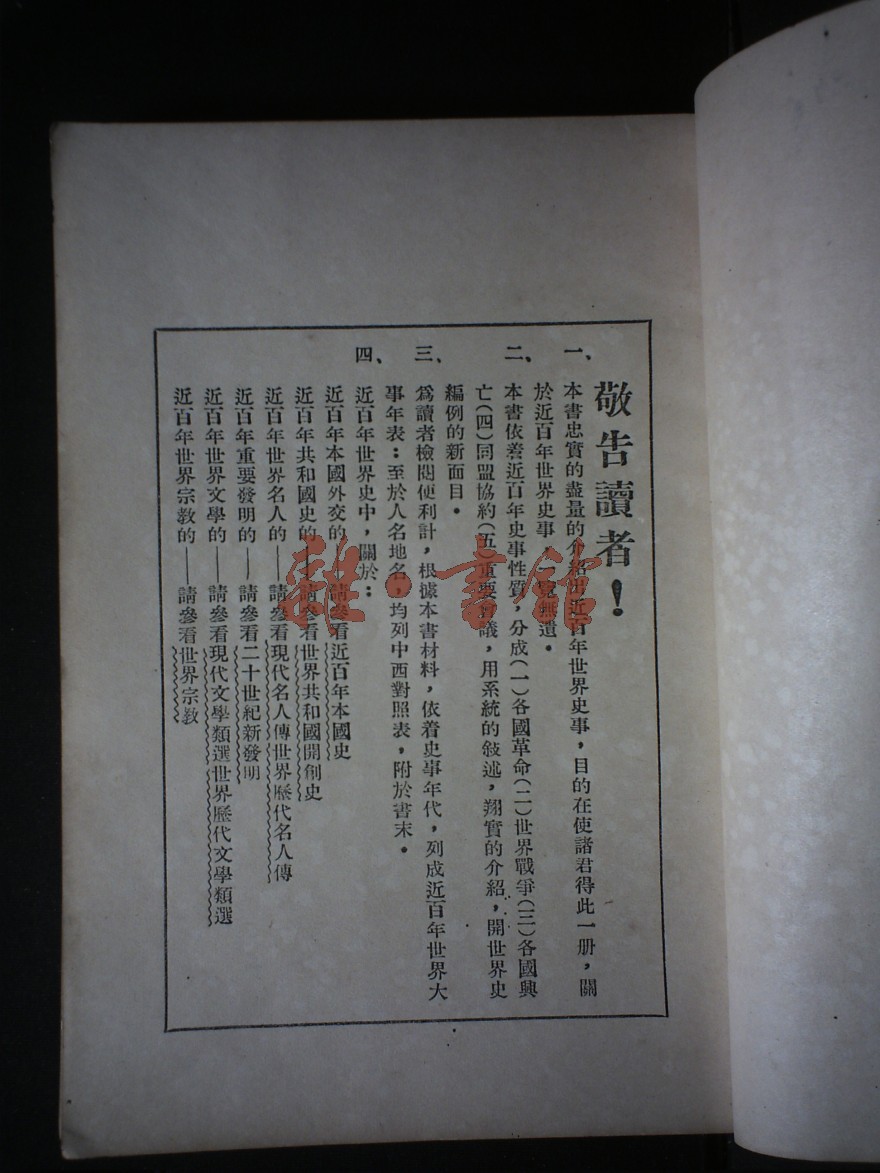 敬告讀者！
一、本書忠實的盡量的介紹出近百年世界史事，目的在使諸君得此一册，關
於近百年世界史事一覽無遺。
二、本書依着近百年史事性質，分成（一）各國革命（二）世界戰爭（三）各國興
亡（四）同盟協約（五）重要會議，用系統的敍述，翔實的介紹，開世界史
編例的新面目。
三、爲讀者檢閱便利計，根據本書材料，依着史事年代，列成近百年世界大
事年表：至於人名地名，均列中西對照表，附於書末。
四、近百年世界史中，關於：
近百年本國外交的——請參看近百年本國史
近百年共和國史的——請參看世界共和國開創史
近百年世界名人的——請參看現代名人傳世界歷代名人傳
近百年重要發明的——請參看二十世紀新發明
近百年世界文學的——請參看現代文學類選世界歷代文學類選
近百年世界宗教的——請參看世界宗教
雜·書館